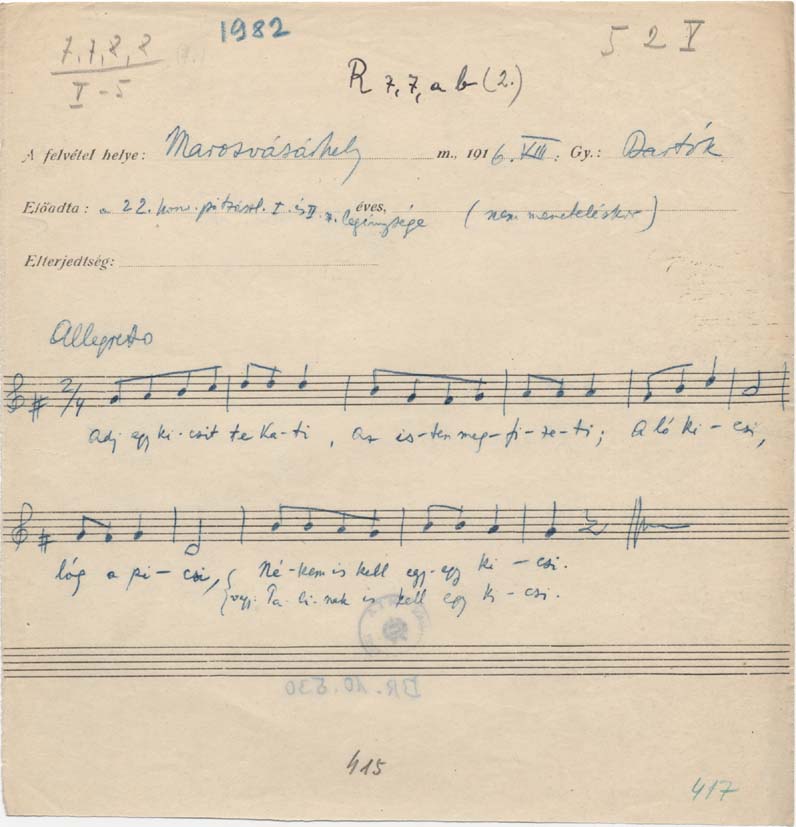 7, 7, 8, 8
V - 5
1982
5 2 V
R 7, 7, a b (2.)
A felvétel helye: Marosvásárhely m., 1916. XII. Gy.: Bartók
Előadta: a 22. I. és II. z. legénysége éves, (nem meneteléskor)
Elterjedtség:
Allegretto
2/4
Adj egy ki-csit te Ka-ti, Az is-ten meg-fi-ze-ti; A ló ki-csi,
lóg a pi-csi, Né-kem is kell egy-egy ki-csi.
vagy: Pa-li-nak is kell egy ki-csi.
BR. 10.530
415
417